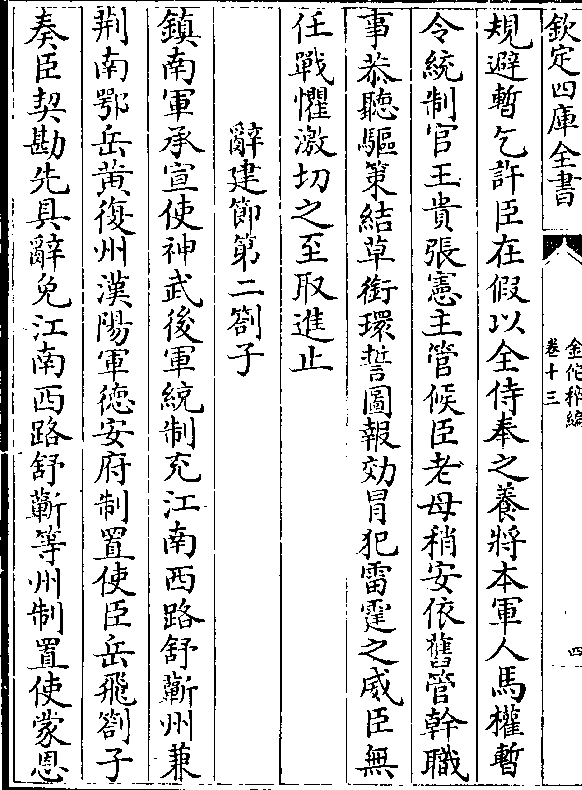 欽定四庫全書
金佗稡編
卷十三
四
規避暫乞許臣在假以全侍奉之養將本軍人馬權暫
令統制官王貴張憲主管候臣老母稍安依舊管幹職
事恭聽驅策結草銜環誓圖報効冒犯雷霆之威臣無
任戰懼激切之至取進止
辭建節第二劄子
鎮南軍承宣使神武後軍統制充江南西路舒蘄州兼
荆南鄂岳黄復州漢陽軍德安府制置使臣岳飛劄子
奏臣契勘先具辭免江南西路舒蘄等州制置使蒙恩